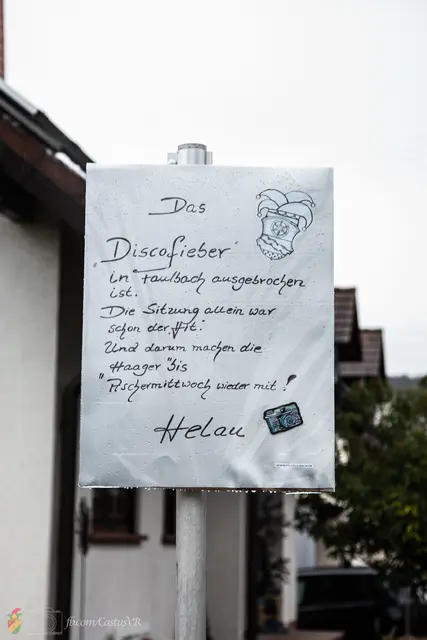 Das
"Discofieber"
in Faulbach ausgebrochen
ist.
Die Sitzung allein war
schon der Hit.
Und darum machen die
"Haager" bis
Aschermittwoch wieder mit!
Helau
fb.com/CastusVR